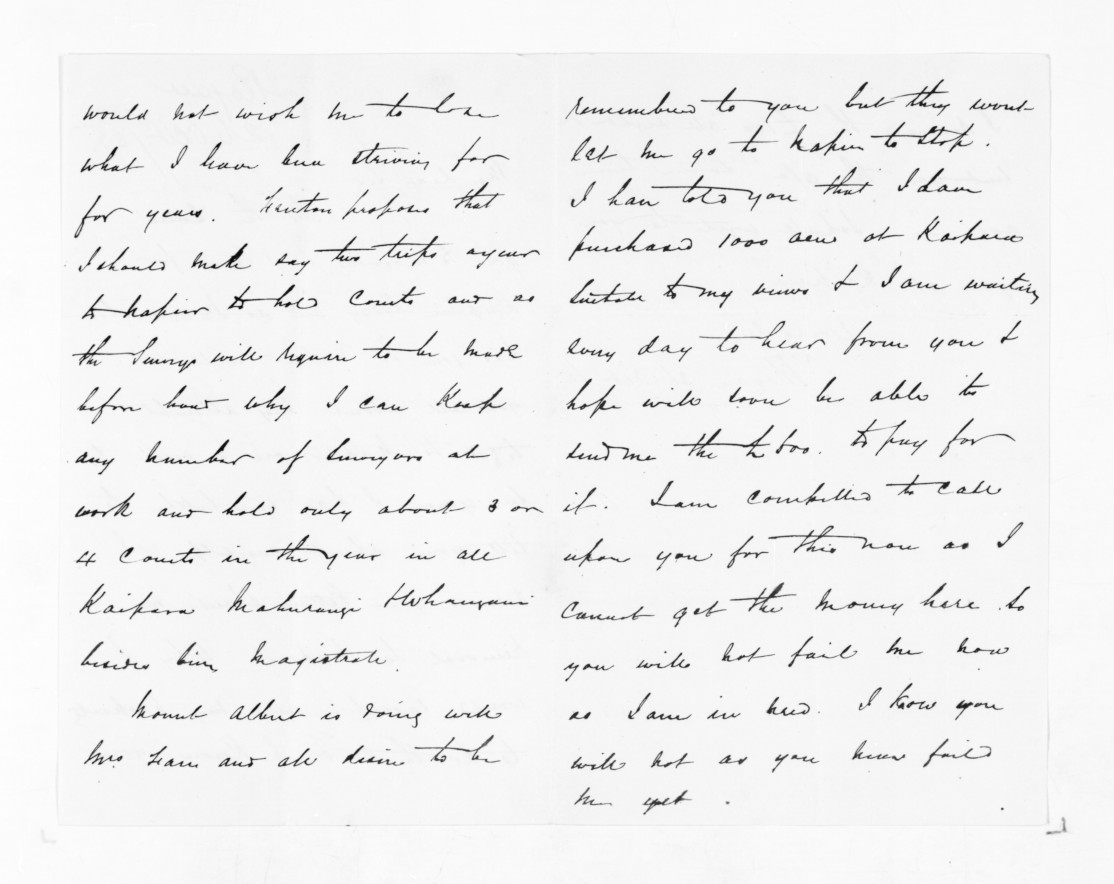 would not wish me to lose
what I have been striving for
for years. Fenton proposes that
I should make say two trips a year
to Napier to hold Courts and as
the Surveys will require to be made
before hand why I can keep
any number of Surveyors at
work and hold only about 3 or
4 Courts in the year in all
Kaipara Mahurangi & Whangarei
besides being Magistrate.
Mount Albert is doing well
Mrs and all desire to be
remembered to you but they wont
let me go to Napier to stop.
I have told you that I have
purchased 1000 acres at Kaipara
suitable to my views & I am waiting
every day to hear from you &
hope will soon be able to
send me the £ 600. to pay for
it. I am compelled to call
upon you for this now as I
cannot get the money here so
you will not fail me now
as I am in need. I know you
will not as you never failed
me yet.